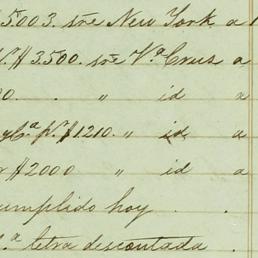 5.003. sre New York a
$3.500. sre Va Crus a
00. " id a
pr. $1.210. " id a
r $2000 " id a
cumplido hoy . .
a letra descontada .